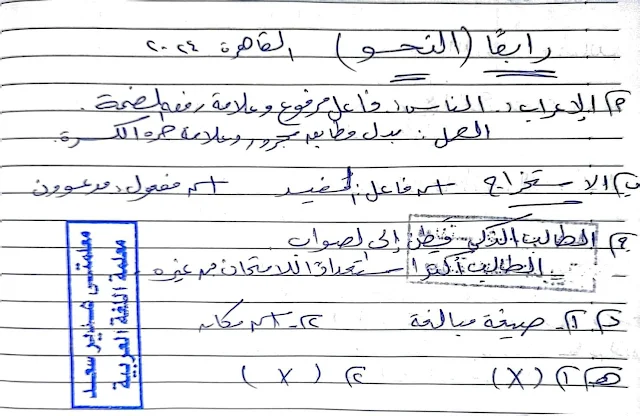 رابعًا (النحو) القاهرة ٢٠٢٤
أ) الإعراب: الناس: فاعل مرفوع وعلامة رفعه الضمة.
العمل: بدل مطابق مجرور وعلامة جره الكسرة.
ب) الاستخراج اسم فاعل: المفيد اسم مفعول: مدعوون
ج) الطالب الذكي فَطِن إلى الصواب
الطالب أكثر استعدادًا للامتحان من غيره
د) ١- صيغة مبالغة ٢- اسم مكان
هـ) ١) (X) ٢) (X)
معلمتي هدير سعد
معلمة اللغة العربية